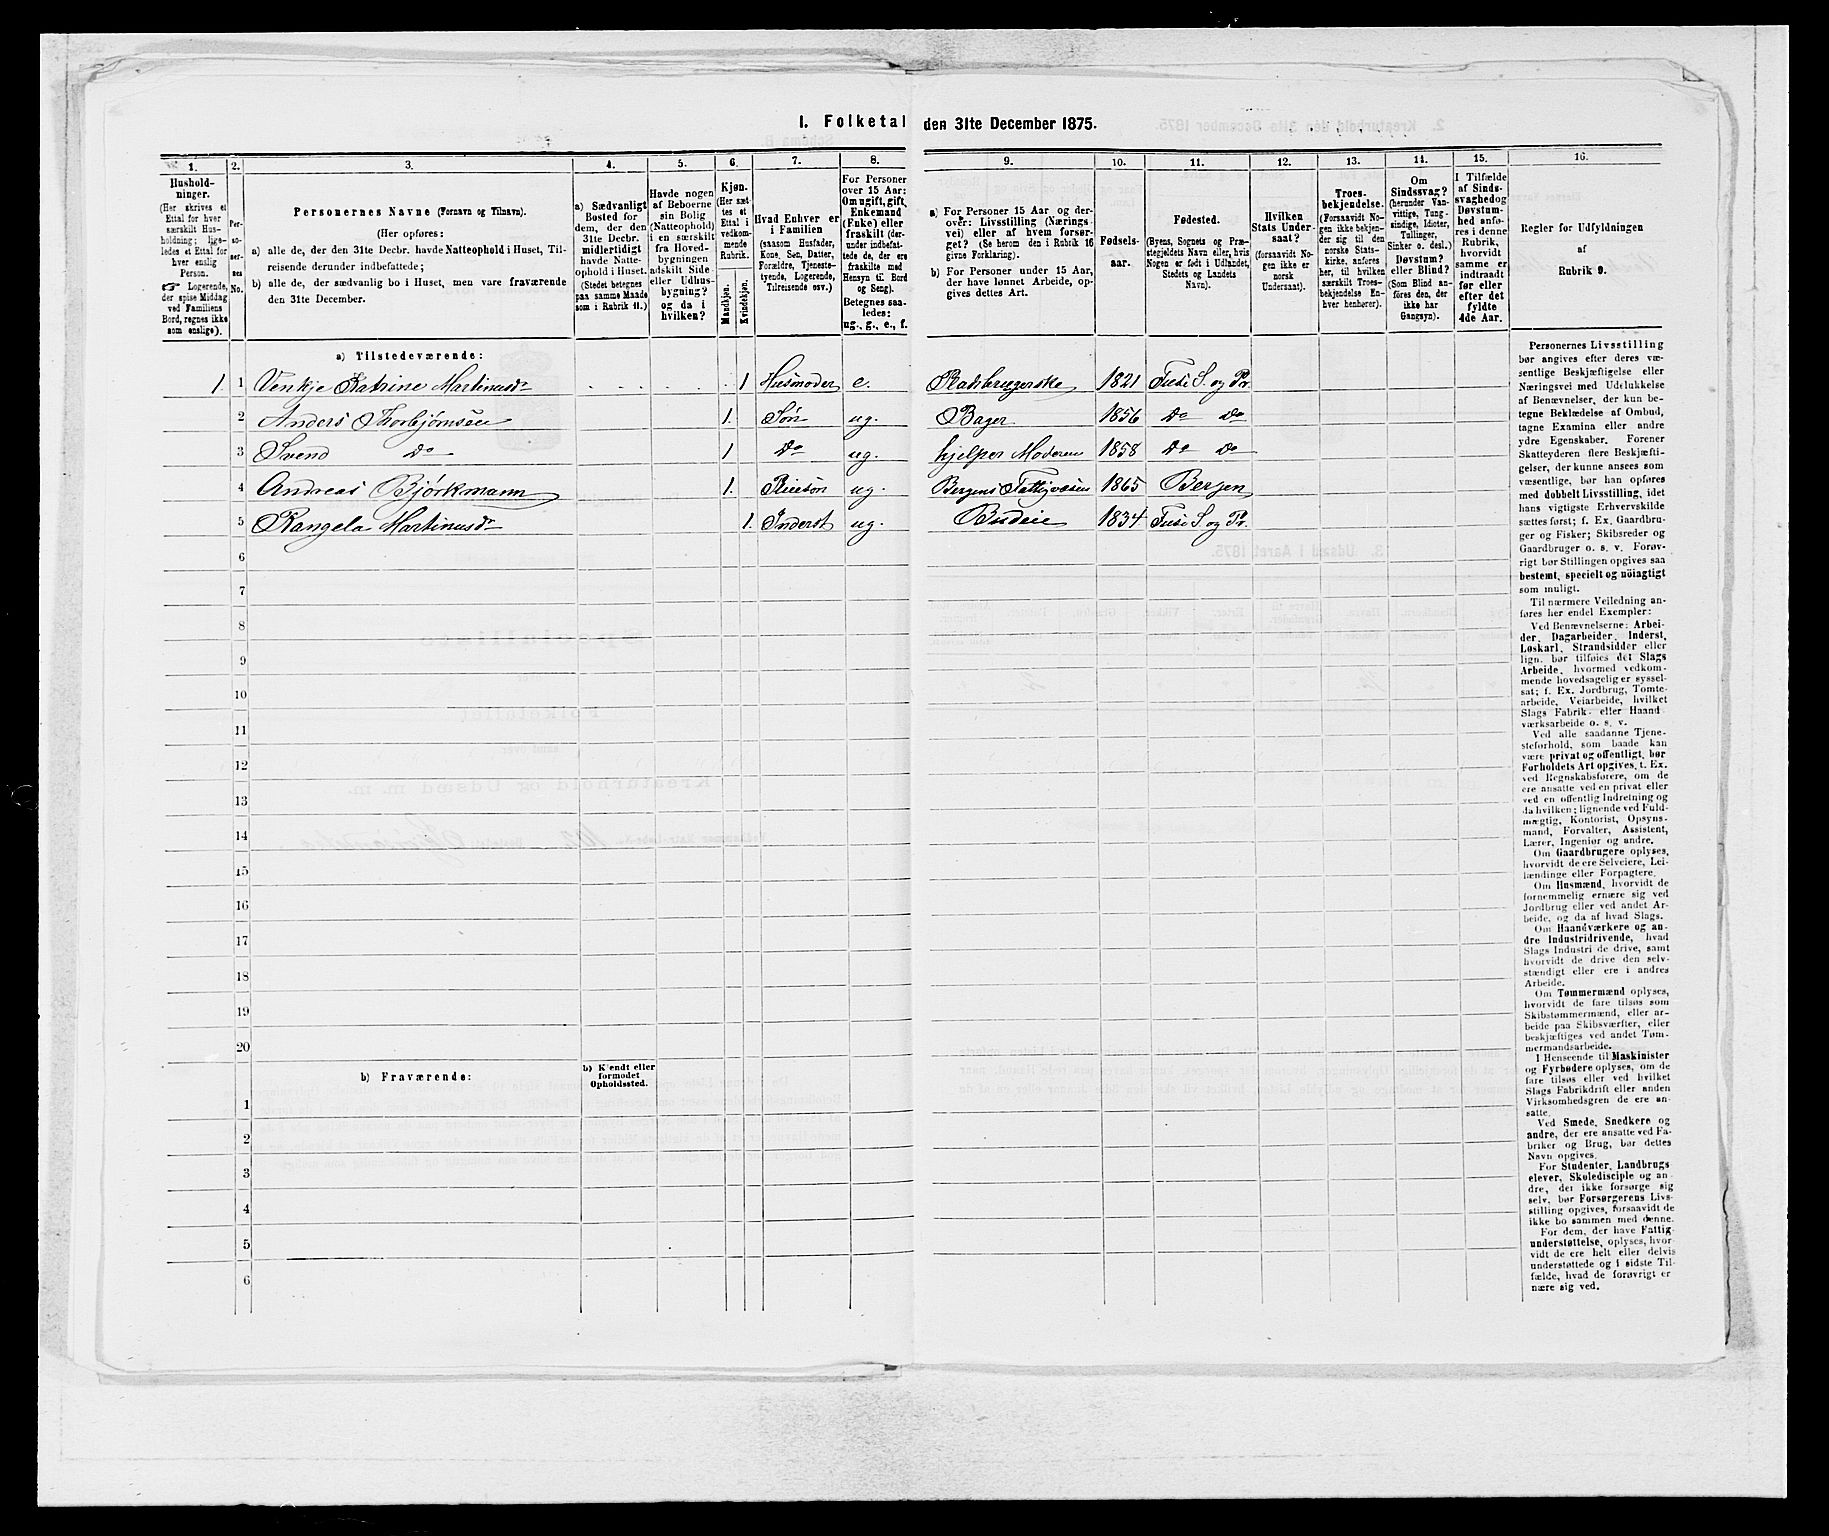 1. Folketal den 31te December 1875.
1. 2. 3. 4. 5. 6. 7. 8. 9. 10. 11. 12. 13. 14. 15. 16.
Hushold-
ninger.
(Her skrives et
Ettal for hver
særskilt Hus-
holdning; lige-
ledes et Ettal for
hver enslig
Person.
☞ Logerende,
der spise Middag
ved Familiens
Bord, regnes ikke
som enslige).
Per-
so-
ner-
nes
No.
Personernes Navne (Fornavn og Tilnavn).
(Her opføres:
a) alle de, der den 31te Decbr. havde Natteophold i Huset, Til-
reisende derunder indbefattede;
b) alle de, der sædvanlig bo i Huset, men vare fraværende
den 31te December.
a) Sædvanligt
Bosted for
dem, der den
31te Decbr.
midlertidigt
havde Natte-
ophold i Huset.
(Stedet betegnes
paa samme Maade
som i Rubrik 11.)
Havde nogen
af Beboerne
sin Bolig
(Natteophold)
i en særskilt
fra Hoved-
bygningen
adskilt Side-
eller Udhus-
bygning?
og da i
hvilken?
Kjøn.
(Her sæt-
tes et
Ettal i
vedkom-
mende
Rubrik.
Mandkjøn.
Kvindekjøn.
Hvad Enhver er
i Familien
(saasom Husfader,
Kone, Søn, Datter,
Forældre, Tjeneste-
tyende, Logerende,
Tilreisende osv.)
For Personer
over 15 Aar:
Om ugift, gift,
Enkemand
(Enke) eller
fraskilt (der-
under indbefat-
tede de, der ere
fraskilte med
Hensyn til Bord
og Seng).
Betegnes saa-
ledes:
ug., g., e., f.
a) For Personer 15 Aar og der-
over: Livsstilling (Nærings-
vei) eller af hvem forsør-
get? (Se herom den i Rubrik 16
givne Forklaring).
b) For Personer under 15 Aar,
der have lønnet Arbeide, op-
gives dettes Art.
Fødsels-
aar.
Fødested.
(Byens, Sognets og Præ-
stegjeldets Navn eller, hvis
Nogen er født i Udlandet,
Stedets og Landets
Navn).
Hvilken
Stats Under-
saat?
(forsaavidt No-
gen ikke er
norsk
Undersaat).
Troes-
bekjendelse.
(Forsaavidt No-
gen ikke bekjen-
der sig til den
norske Stats-
kirke, anføres
her, til hvilken
særskilt Troes-
bekjendelse En-
hver henhører).
Om
Sindssvag?
(herunder Van-
vittige, Tung-
sindige, Idioter,
Tullinger,
Sinker o. desl.)
Døvstum?
eller Blind?
(Som Blind an-
føres den, der
ikke har
Gangsyn).
I Tilfælde
af Sinds-
svaghed og
Døvstum-
hed anfø-
res i denne
Rubrik,
hvorvidt
samme er
indtraadt
før eller
efter det
fyldte
4de Aar.
Regler for Udfyldningen
af
Rubrik 9.
a) Tilstedeværende:
1 1 Venkje Katrine Martinusdr 1 Husmoder e. Radsbrugerske 1821 Fuse S. og Pr.
2 Anders Thorbjørnsen 1. Søn ug. Bager 1856 Do Do
3 Svend Do 1 Do ug. hjelper Moderen 1858 Do Do
4 Andreas Bjørkmann 1. Pleiesøn ug. Bergens Fattigvæsen 1865 Bergen
5 Rangela Martinusdr 1. Inderst ug. Budeie 1834 Fuse S. og Pr.
6
7
8
9
10
11
12
13
14
15
16
17
18
19
20
b) Fraværende:
b) Kjendt eller
formodet
Opholdssted.
1
2
3
4
5
6
Personernes Livsstilling
bør angives efter deres væ-
sentlige Beskjæftigelse eller
Næringsvei med Udelukkelse
af Benævnelser, der kun be-
tegne Beklædelse af Ombud,
tagne Examina eller andre
ydre Egenskaber. Forener
Skatteyderen flere Beskjæfti-
gelser, der kunne ansees som
væsentlige, bør han opføres
med dobbelt Livsstilling, idet
hans vigtigste Erhvervskilde
sættes først; f. Ex. Gaardbru-
ger og Fisker; Skibsreder og
Gaardbruger o. s. v. Forøv-
rigt bør Stillingen opgives saa
bestemt, specielt og nøiagtigt
som muligt.
Til nærmere Veiledning an-
føres her endel Exempler:
Ved Benævnelserne: Arbei-
der, Dagarbeider, Inderst,
Løskarl, Strandsidder eller
lign. bør tilføies det Slags
Arbeide, hvormed vedkom-
mende hovedsagelig er syssel-
sat; f. Ex. Jordbrug, Tomte-
arbeide, Veiarbeide, hvilket
Slags Fabrik- eller Haand-
værksarbeide o. s. v.
Ved alle saadanne Tjene-
steforhold, som baade kan
være privat og offentligt, bør
Forholdets Art opgives, t. Ex.
ved Regnskabsførere, om de
ere ansatte ved en privat eller
ved en offentlig Indretning og
da hvilken; lignende ved Fuld-
mægtig, Kontorist, Opsyns-
mand, Forvalter, Assistent,
Lærer, Ingeniør og andre.
Om Gaardbrugere oplyses,
hvorvidt de ere Selveiere, Lei-
lændinge eller Forpagtere.
Om Husmænd, hvorvidt de
fornemmelig ernære sig ved
Jordbrug eller ved andet Ar-
beide, og da af hvad Slags.
Om Haandværkere og an-
dre Industridrivende, hvad
Slags Industri de drive, samt
hvorvidt de drive den selv-
stændigt eller ere i andres
Arbeide.
Om Tømmermænd oplyses,
hvorvidt de fare tilsøs som
Skibstømmermænd, eller ar-
beide paa Skibsværfter, eller
beskjæftiges ved andet Tøm-
mermandsarbeide.
I Henseende til Maskinister
og Fyrbødere oplyses, om de
fare tilsøs eller ved hvilket
Slags Fabrikdrift eller anden
Virksomhedsgren de ere an-
satte.
Ved Smede, Snedkere og
andre, der ere ansatte ved Fa-
briker og Brug, bør dettes
Navn opgives.
For Studenter, Landbrugs
elever, Skoledisciple og an-
dre, der ikke forsørge sig
selv, bør Forsørgerens Livs-
stilling opgives, forsaavidt de
ikke bo sammen med denne.
For dem, der have Fattig-
understøttelse, oplyses, hvor-
vidt de ere helt eller delvis
understøttede og i sidste Til-
fælde, hvad de forøvrigt er-
nære sig ved.